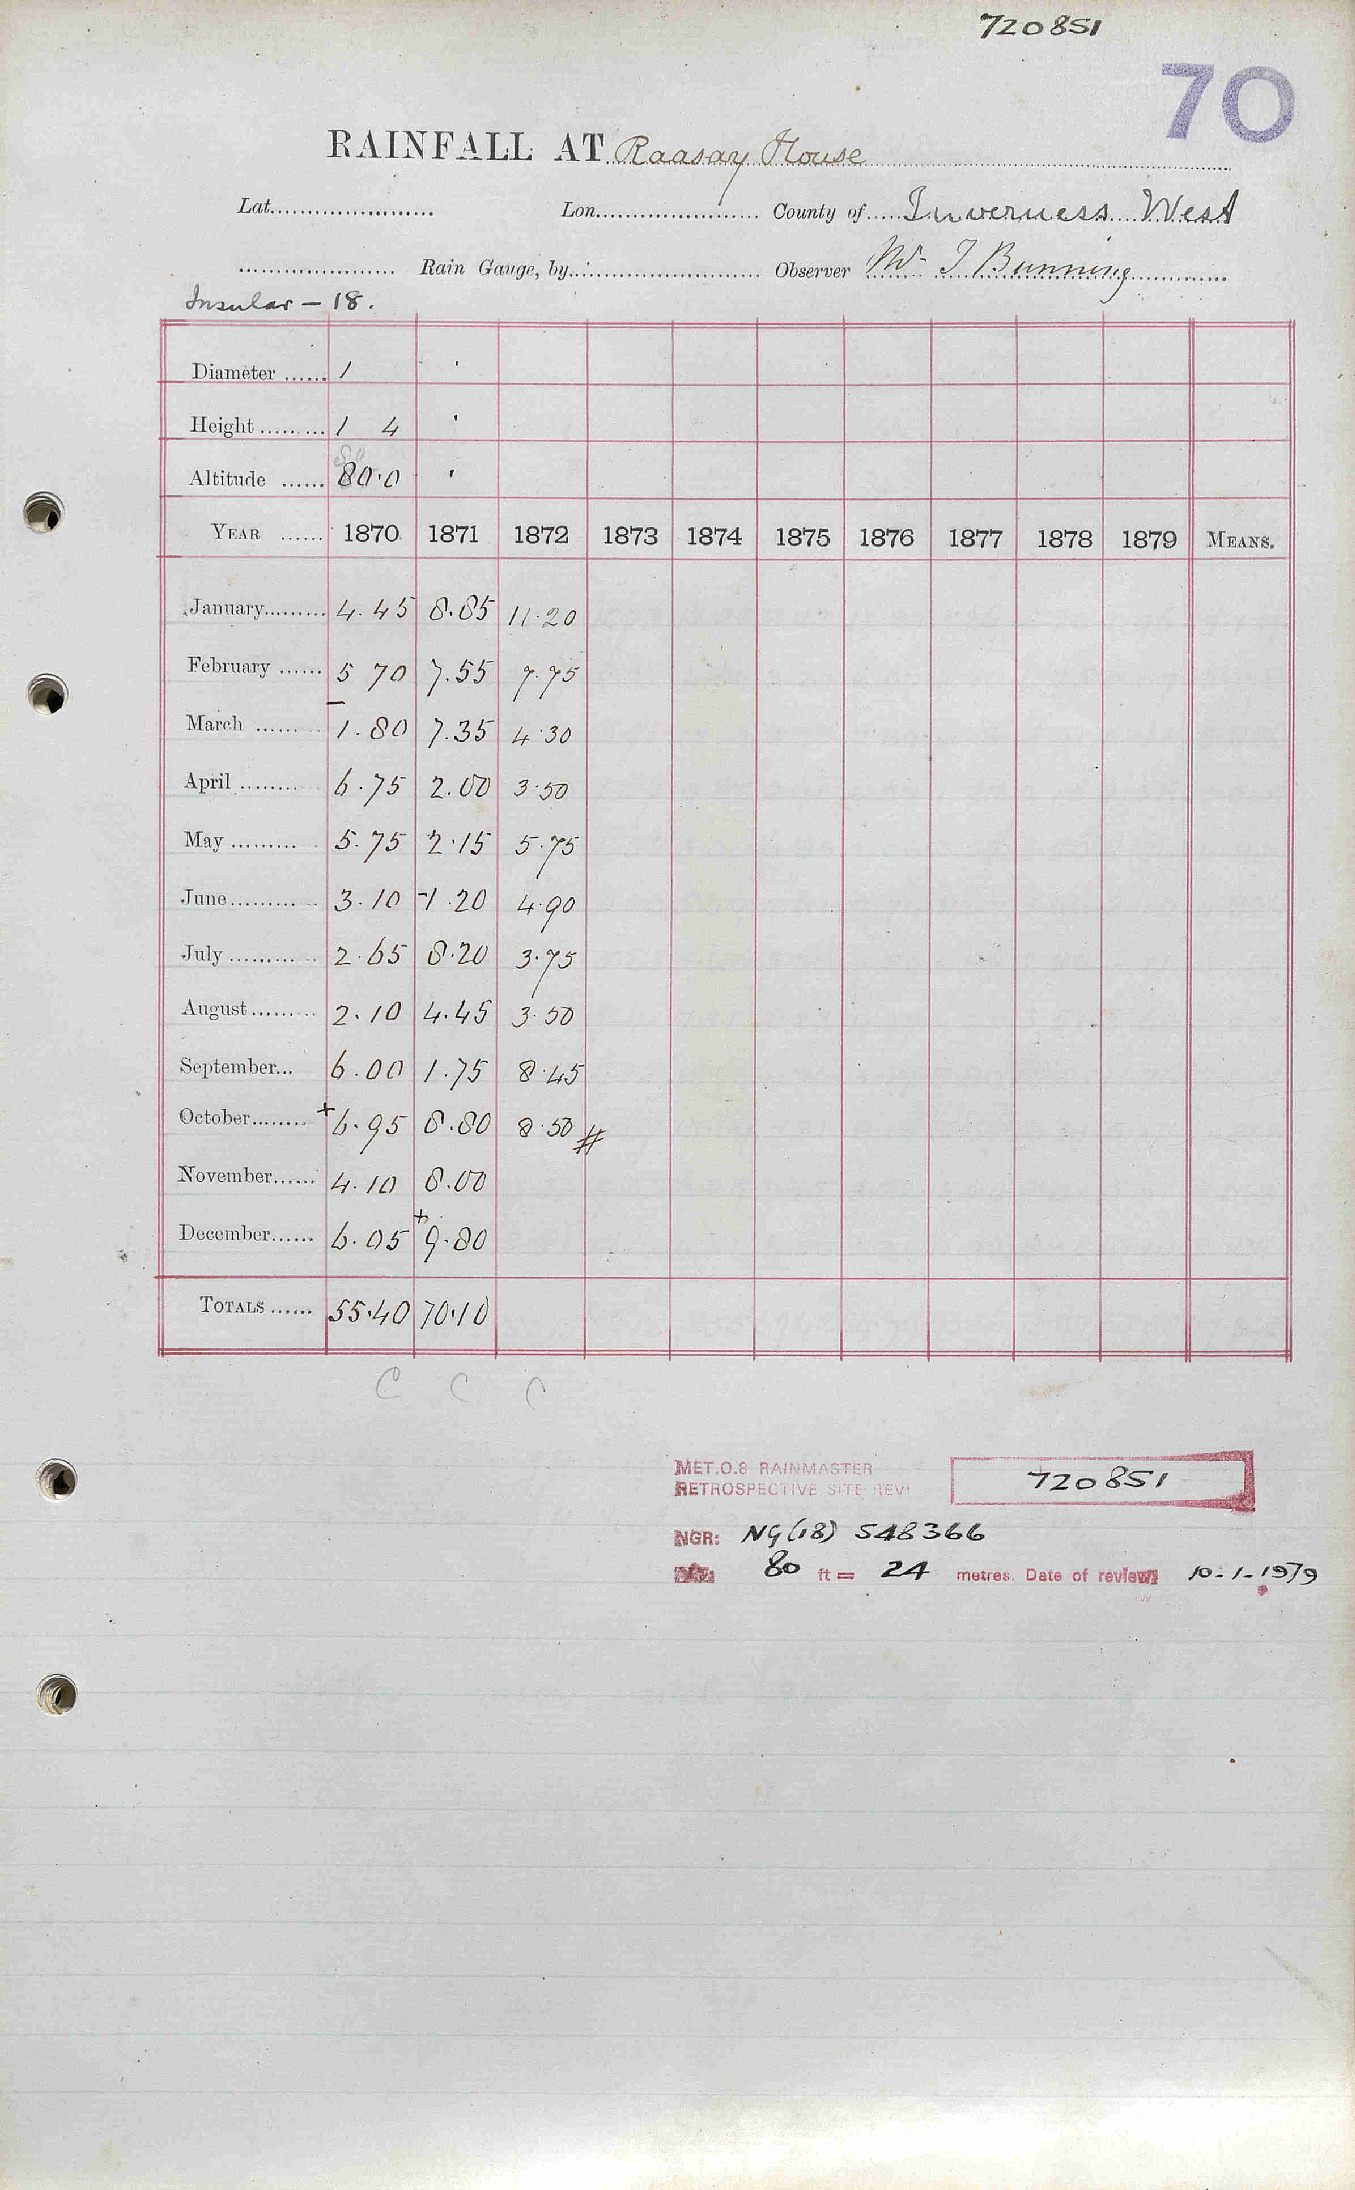 720851
70
RAINFALL AT Raasay House
Lat. Lon. County of Inverness West
Rain Gauge, by Observer Mr J Bunning
Insular - 18.
Diameter 1 '
Height 1 4 '
Altitude 80.0 '
YEAR 1870 1871 1872 1873 1874 1875 1876 1877 1878 1879 MEANS.
January 4.45 8.85 11.20
February 5 70 7.55 7.75
March 1.80 7.35 4.30
April 6.75 2.00 3.50
May 5.75 2.15 5.75
June 3.10 -1.20 4.90
July 2.65 8.20 3.75
August 2.10 4.45 3.50
September 6.00 1.75 8.45
October +6.95 8.80 8.50 #
November 4.10 8.00
December 6.05 +9.80
TOTALS 55.40 70.10
C C C
MET.O.8 RAINMASTER
RETROSPECTIVE SITE REVI 720851
NGR: NG(18) 548366
80 ft = 24 metres. Date of review 10-1-1979